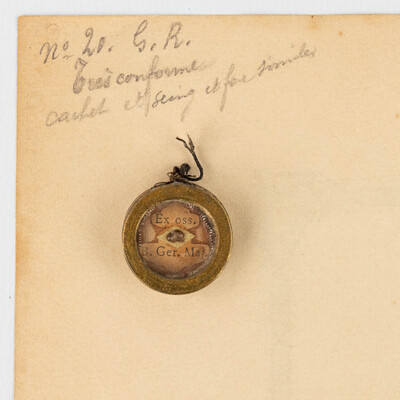 No 20. G. R.
Très conforme
cachet et seing et fac simile
Ex oss.
B. Ger. Maj.